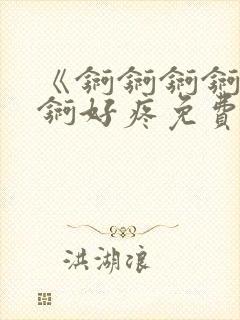 《锕锕锕锕
锕好疼免費
洪湖浪